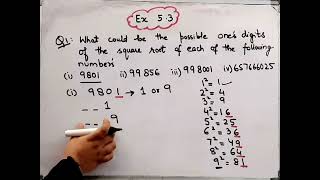 Ex 5.3
Q1: What could be the possible one's digits
of the square root of each of the following
numbers
(i) 9801 ii) 99856 iii) 998001 iv) 657666025
(i) 9801 → 1 or 9
_ _ 1
_ _ 9
1² = 1
2² = 4
3² = 9
4² = 16
5² = 25
6² = 36
7² = 49
8² = 64
9² = 81